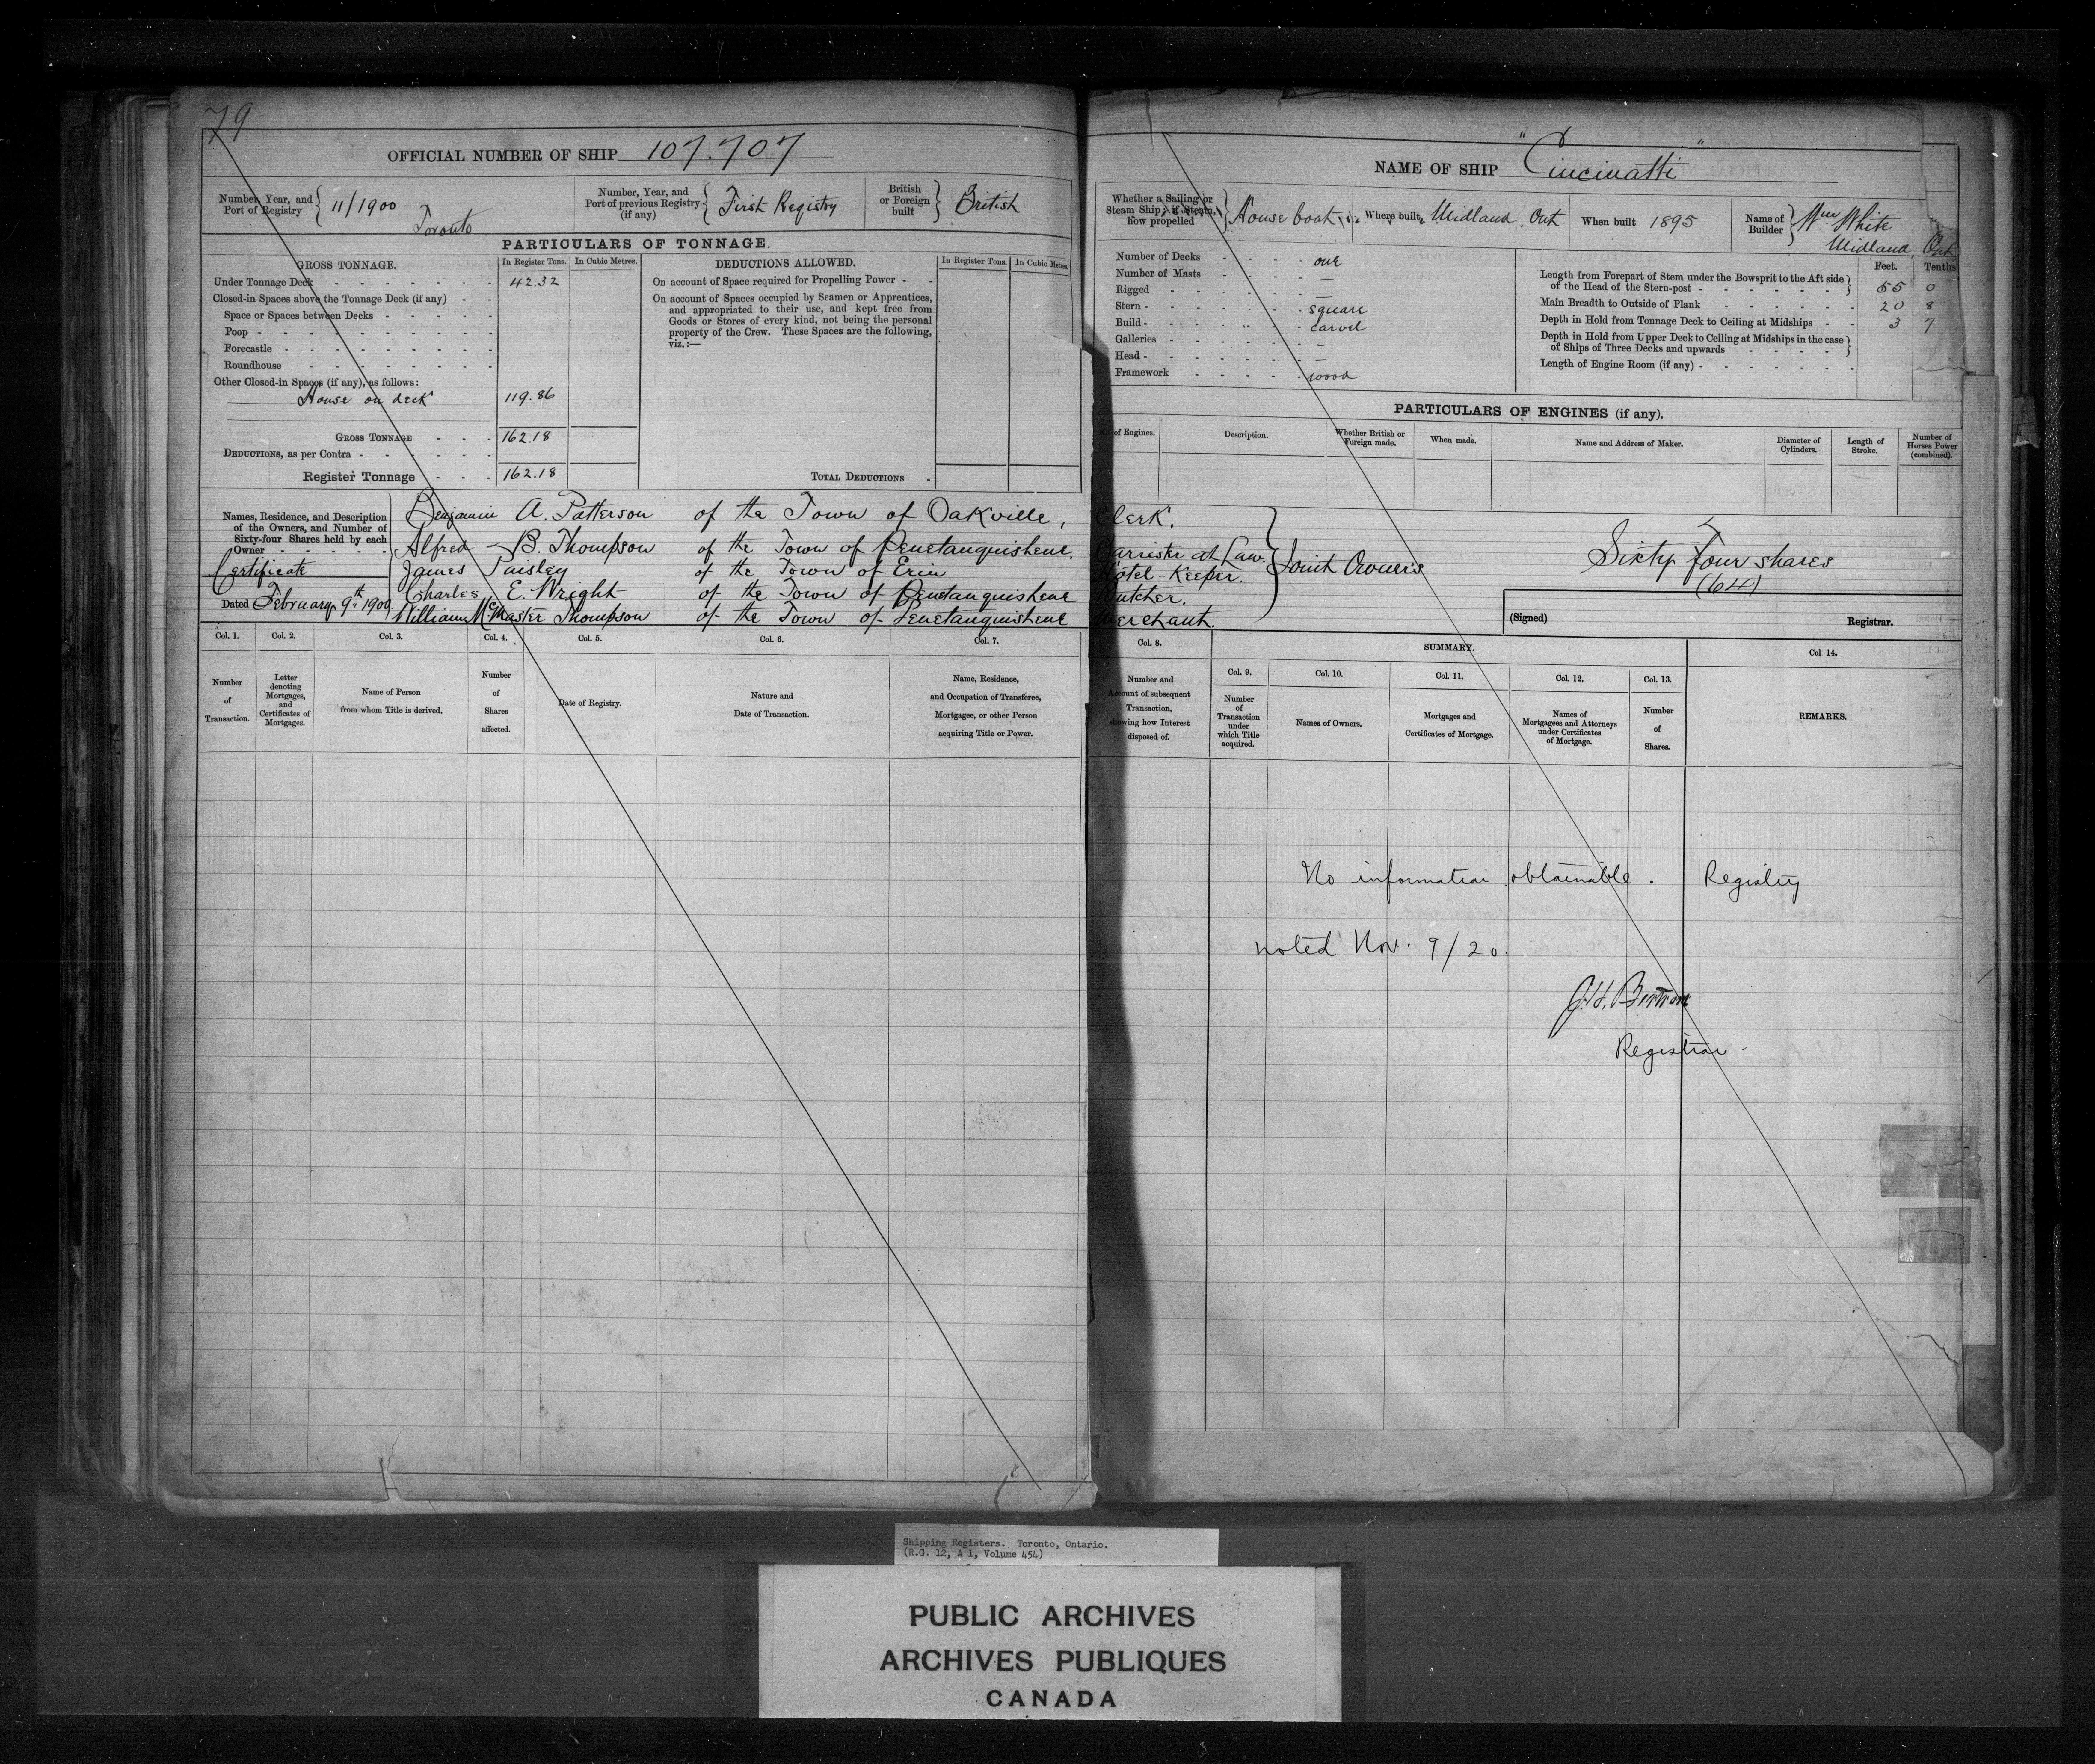 79
OFFICIAL NUMBER OF SHIP 107.707
Number, Year, and Port of Registry 11/1900 Toronto
Number, Year, and Port of previous Registry (if any) First Registry
British or Foreign built British
PARTICULARS OF TONNAGE.
GROSS TONNAGE. In Register Tons. In Cubic Metres.
Under Tonnage Deck 42.32
Closed-in Spaces above the Tonnage Deck (if any)
Space or Spaces between Decks
Poop
Forecastle
Roundhouse
Other Closed-in Spaces (if any), as follows:
House on deck 119.86
GROSS TONNAGE 162.18
DEDUCTIONS, as per Contra
Register Tonnage 162.18
DEDUCTIONS ALLOWED. In Register Tons. In Cubic Metres.
On account of Space required for Propelling Power
On account of Spaces occupied by Seamen or Apprentices,
and appropriated to their use, and kept free from
Goods or Stores of every kind, not being the personal
property of the Crew. These Spaces are the following,
viz.:—
TOTAL DEDUCTIONS
NAME OF SHIP "Cincinatti"
Whether a Sailing or Steam Ship; if Steam, how propelled House boat
Where built Midland Ont
When built 1895
Name of Builder Wm White Midland Ont
Number of Decks one
Number of Masts —
Rigged —
Stern square
Build carvel
Galleries —
Head —
Framework wood
Feet. Tenths
Length from Forepart of Stem under the Bowsprit to the Aft side
of the Head of the Stern-post 55 0
Main Breadth to Outside of Plank 20 8
Depth in Hold from Tonnage Deck to Ceiling at Midships 3 7
Depth in Hold from Upper Deck to Ceiling at Midships in the case
of Ships of Three Decks and upwards
Length of Engine Room (if any)
PARTICULARS OF ENGINES (if any).
of Engines. Description. Whether British or Foreign made. When made. Name and Address of Maker. Diameter of Cylinders. Length of Stroke. Number of Horses Power (combined).
Names, Residence, and Description
of the Owners, and Number of
Sixty-four Shares held by each
Owner
Certificate
Dated February 9th 1900
Benjamin A. Patterson of the Town of Oakville, Clerk.
Alfred B. Thompson of the Town of Penetanguishene. Barrister at Law.
James Paisley of the Town of Erin Hotel-Keeper.
Charles E. Wright of the Town of Penetanguishene Butcher.
William McMaster Thompson of the Town of Penetanguishene Merchant.
Joint Owners
Sixty four shares
(64)
(Signed) Registrar.
Col. 1. Col. 2. Col. 3. Col. 4. Col. 5. Col. 6. Col. 7.
Number of Transaction.
Letter denoting Mortgages, and Certificates of Mortgages.
Name of Person from whom Title is derived.
Number of Shares affected.
Date of Registry.
Nature and Date of Transaction.
Name, Residence, and Occupation of Transferee, Mortgagee, or other Person acquiring Title or Power.
Col. 8. SUMMARY. Col 14.
Col. 9. Col. 10. Col. 11. Col. 12. Col. 13.
Number and Account of subsequent Transaction, showing how Interest disposed of.
Number of Transaction under which Title acquired.
Names of Owners.
Mortgages and Certificates of Mortgage.
Names of Mortgagees and Attorneys under Certificates of Mortgage.
Number of Shares.
REMARKS.
No information obtainable. Registry
noted Nov. 9/20.
Registrar
Shipping Registers. Toronto, Ontario.
(R.G. 12, A 1, Volume 454)
PUBLIC ARCHIVES
ARCHIVES PUBLIQUES
CANADA